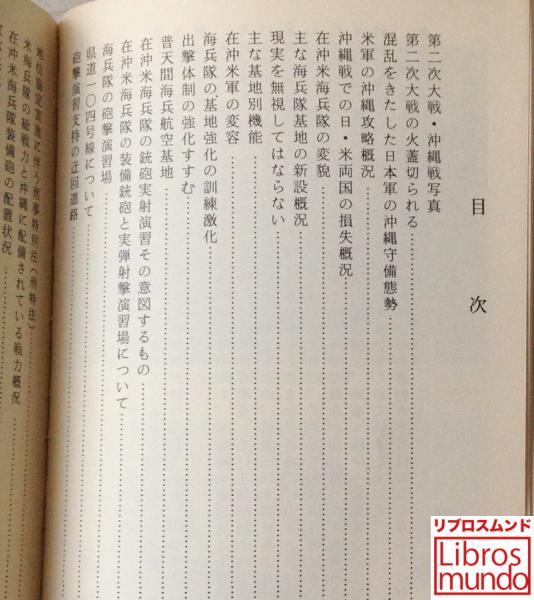 目次
第二次大戦・沖縄戦写真
第二次大戦の火蓋切られる
混乱をきたした日本軍の沖縄守備態勢
米軍の沖縄攻略概況
沖縄戦での日・米両国の損失概況
在沖米海兵隊の変貌
主な海兵隊基地の新設概況
現実を無視してはならない
主な基地別機能
在沖米軍の変容
海兵隊の基地強化の訓練激化
出撃体制の強化すすむ
普天間海兵航空基地
在沖米海兵隊の銃砲実射演習その意図するもの
在沖米海兵隊の装備銃砲と実弾射撃演習場について
海兵隊の砲撃演習場
県道一〇四号線について
砲撃演習支持の迂回道路
地位協定実施に伴う刑事特別法(刑特法)
米海兵隊の総戦力と沖縄に配備されている戦力概況
在沖米海兵隊装備砲の配置状況
リブロスムンド
Libros
mundo